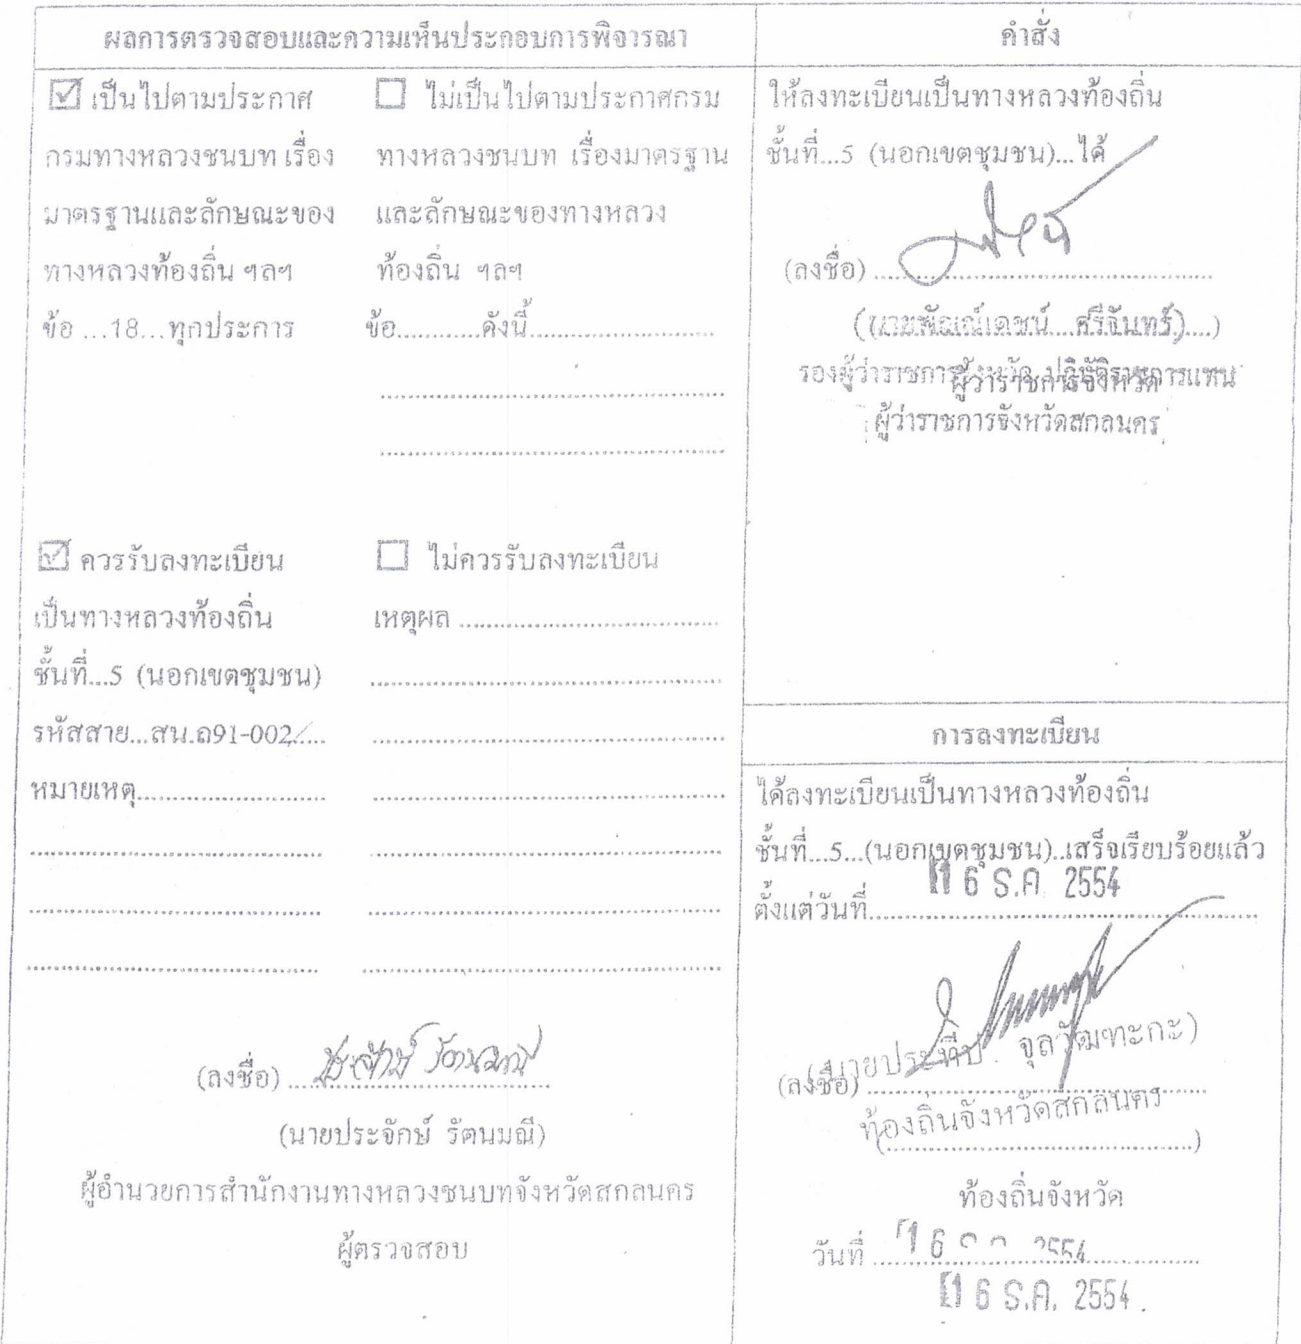 ผลการตรวจสอบและความเห็นประกอบการพิจารณา
☑ เป็นไปตามประกาศ
กรมทางหลวงชนบท เรื่อง
มาตรฐานและลักษณะของ
ทางหลวงท้องถิ่น ฯลฯ
ข้อ ...18...ทุกประการ
☐ ไม่เป็นไปตามประกาศกรม
ทางหลวงชนบท เรื่องมาตรฐาน
และลักษณะของทางหลวง
ท้องถิ่น ฯลฯ
ข้อ............ดังนี้........................
☑ ควรรับลงทะเบียน
เป็นทางหลวงท้องถิ่น
ชั้นที่...5 (นอกเขตชุมชน)
รหัสสาย...สน.ถ91-002.....
หมายเหตุ........................
☐ ไม่ควรรับลงทะเบียน
เหตุผล ........................
(ลงชื่อ) ประจักษ์ รัตนมณี
(นายประจักษ์ รัตนมณี)
ผู้อำนวยการสำนักงานทางหลวงชนบทจังหวัดสกลนคร
ผู้ตรวจสอบ
คำสั่ง
ให้ลงทะเบียนเป็นทางหลวงท้องถิ่น
ชั้นที่...5 (นอกเขตชุมชน)...ได้
(ลงชื่อ) ........................
ศรีจันทร์)....)
รองผู้ว่าราชการจังหวัด ปฏิบัติราชการแทน
ผู้ว่าราชการจังหวัด
ผู้ว่าราชการจังหวัดสกลนคร
การลงทะเบียน
ได้ลงทะเบียนเป็นทางหลวงท้องถิ่น
ชั้นที่...5...(นอกเขตชุมชน)..เสร็จเรียบร้อยแล้ว
ตั้งแต่วันที่ 16 ธ.ค. 2554
(นายประทีป จุลวัฒฑะกะ)
(ลงชื่อ) ........................
ท้องถิ่นจังหวัดสกลนคร
(........................)
ท้องถิ่นจังหวัด
วันที่ 16 ธ.ค. 2554
16 ธ.ค. 2554